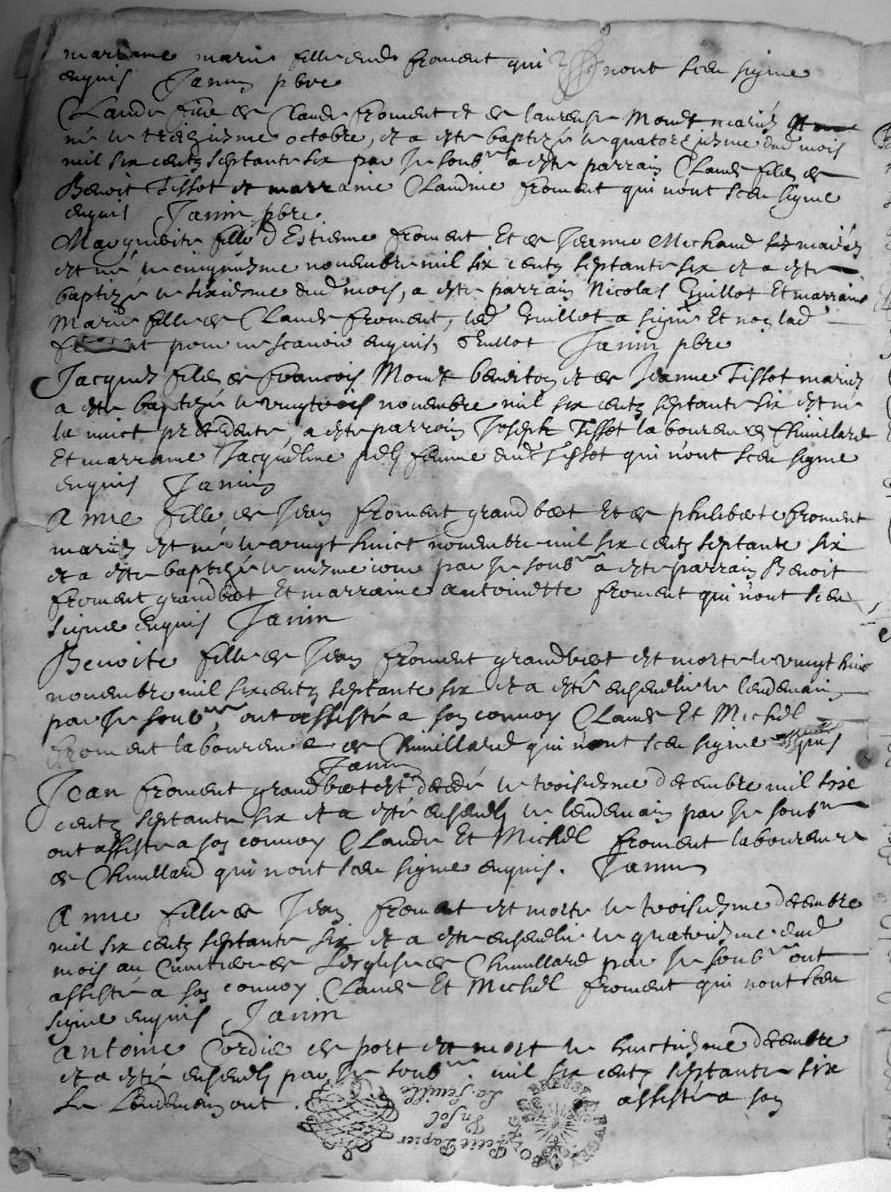 marraine marie fille dud froment qui nont sceu signe
enquis Janin pbre
Claude filz de Claude froment et de laurense Mond mariez
né le treiziesme octobre, et a este baptizé le quatorziesme dud mois
mil six centz septante six par Je soubne a este parrain Claude filz de
Benoit Tissot et marraine Claudine froment qui nont sceu signe
enquis Janin pbre
Marguerite fille d Estienne froment Et de Jeanne Michaud ses mariez
est né le cinquiesme novembre mil six centz septante six et a este
baptizée le sixiesme dud mois, a este parrain Nicolas Guillot Et marraine
Marie fille de Claude froment, led Guillot a signé Et non lad
froment pour ne scavoir enquis Guillot Janin pbre
Jacques filz de francois Mond et de Jeanne Tissot mariez
a este baptizé le novembre mil six centz septante six est né
la nuict precedente, a este parrain Joseph Tissot laboureur de Chuillard
Et marraine Jacqueline femme dud Tissot qui nont sceu signe
enquis Janin
Anne fille de Jean froment grand bot Et de philiberte froment
mariez est né le vingt huict novembre mil six centz septante six
et a este baptizée le mesme jour par Je soubne a este parrain Benoit
froment grand bot Et marraine antoinette froment qui nont sceu
signe enquis Janin
Benoite fille de Jean froment grand bot est morte le vingt huict
novembre mil six centz septante six et a esté ensevelie le lendemain
par Je soubne, ont assisté a son convoy Claude Et Michel
froment laboureurs de Chuillard qui nont sceu signe enquis
Janin
Jean froment grand bot est decedé le troisiesme decembre mil six
centz septante six et a esté ensevely le lendemain par Je soubne
ont assisté a son convoy Claude Et Michel froment laboureurs
de Chuillard qui nont sceu signe enquis. Janin
Anne fille de Jean froment est morte le troisiesme decembre
mil six centz septante six et a este ensevelie le quatriesme dud
mois au Cimetiere de Lesglise de Chuillard par Je soubne ont
assisté a son convoy Claude Et Michel froment qui nont sceu
signe enquis Janin
antoine Cordie de port est mort le huictiesme decembre
et a esté ensevely par Je soubne. mil six centz septante six
Le Lendemain ont assisté a son
Petit Papier
Un sol
La feuille
BRESSE BUGEY